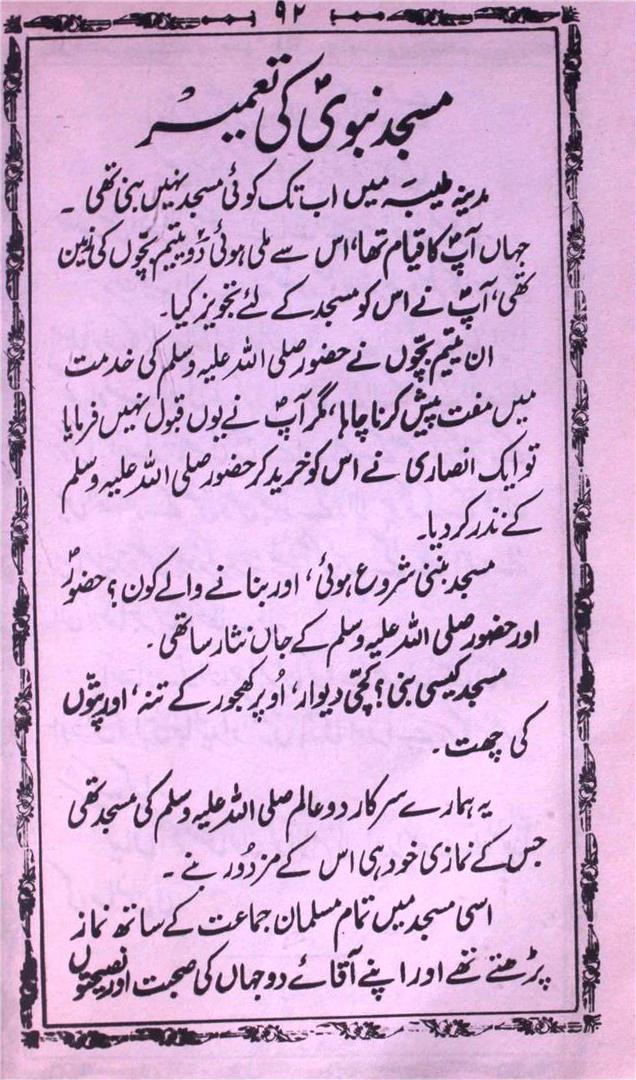 ۹۲
مسجد نبویؐ کی تعمیر
مدینہ طیبہ میں اب تک کوئی مسجد نہیں بنی تھی ۔
جہاں آپؐ کا قیام تھا، اس سے ملی ہوئی دو یتیم بچّوں کی زمین
تھی، آپؐ نے اس کو مسجد کے لئے تجویز کیا۔
ان یتیم بچّوں نے حضور صلی اللہ علیہ وسلم کی خدمت
میں مفت پیش کرنا چاہا، مگر آپؐ نے یوں قبول نہیں فرمایا
تو ایک انصاری نے اس کو خرید کر حضور صلی اللہ علیہ وسلم
کے نذر کر دیا۔
مسجد بننی شروع ہوئی، اور بنانے والے کون؟ حضورؐ
اور حضور صلی اللہ علیہ وسلم کے جاں نثار ساتھی ۔
مسجد کیسی بنی؟ کچّی دیوار، اُوپر کھجور کے تنہ، اور پتّوں
کی چھت ۔
یہ ہمارے سرکار دو عالم صلی اللہ علیہ وسلم کی مسجد تھی
جس کے نمازی خود ہی اس کے مزدُور بنے ۔
اسی مسجد میں تمام مسلمان جماعت کے ساتھ نماز
پڑھتے تھے اور اپنے آقائے دو جہاں کی صحبت اور نصیحتوں